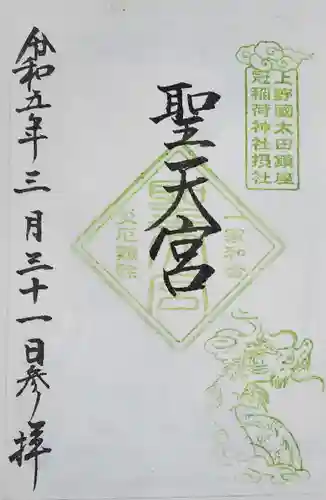 上野國太田鎮座
冠稲荷神社摂社
聖天宮
一家和合
災厄消除
令和五年三月三十一日参拝